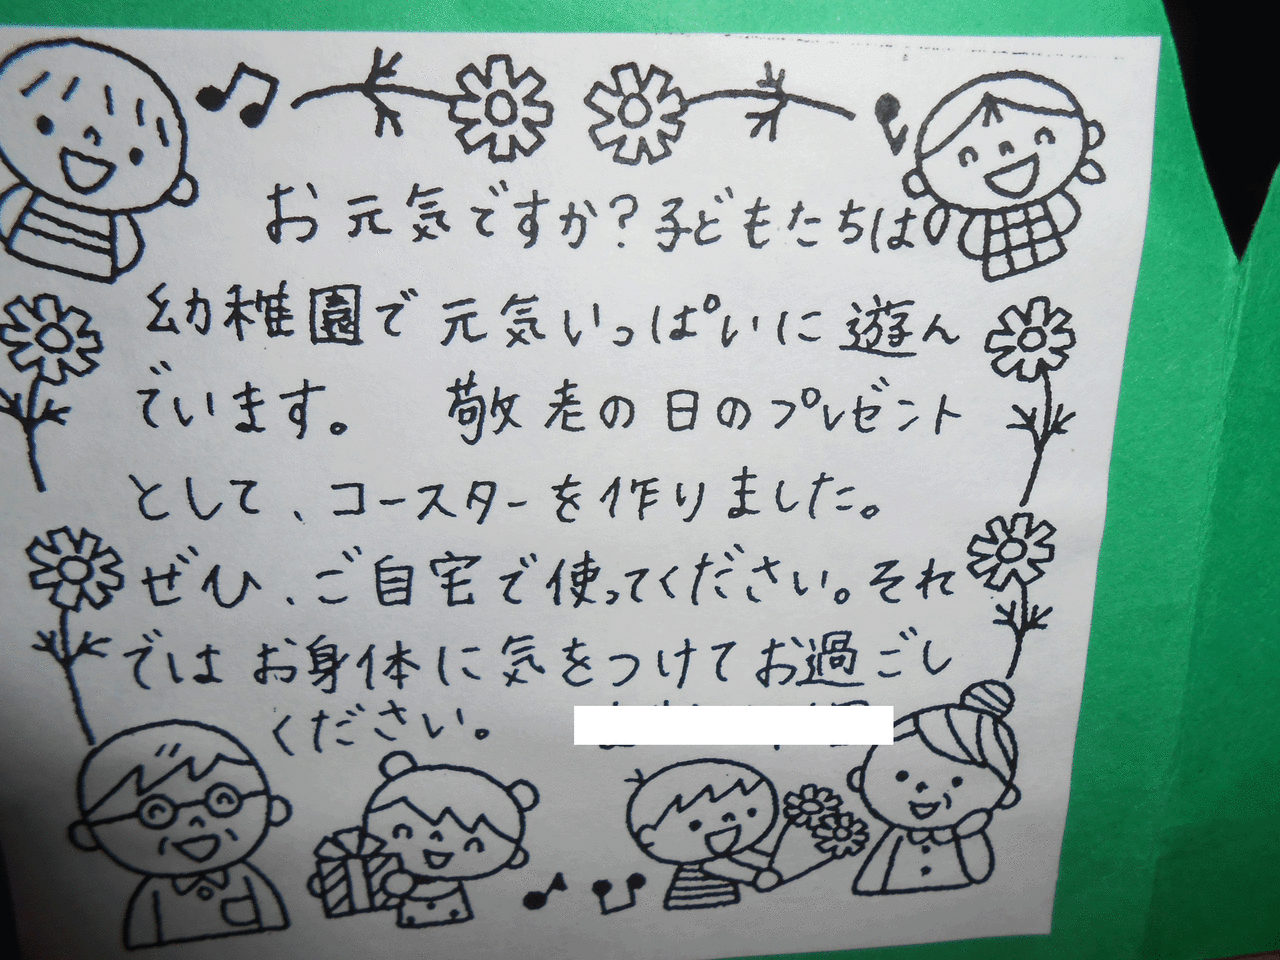 お元気ですか?子どもたちは
幼稚園で元気いっぱいに遊ん
でいます。 敬老の日のプレゼント
として、コースターを作りました。
ぜひ、ご自宅で使ってください。それ
ではお身体に気をつけてお過ごし
ください。